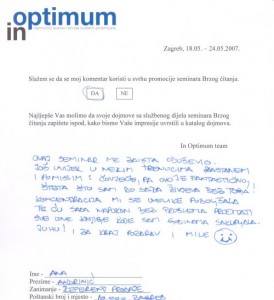 in optimum
Zagreb, 18.05. – 24.05.2007.
Slažem se da se moj komentar koristi u svrhu promocije seminara Brzog čitanja.
DA
NE
Najljepše Vas molimo da svoje dojmova sa službenog dijela seminara Brzog
čitanja zapišete ispod, kako bismo Vaše impresije uvrstili u katalog dojmova.
In Optimum team
OVAJ SEMINAR ME ZAISTA ODUŠEVIO.
JOŠ UVIJEK U NEKIM TRENUCIMA ZASTANEM
I POMISLIM: ČINJEGA, PA OVO JE FANTASTIČNO,
ŠTO SAM DO SADA ŽIVJELA BEZ TOGA!
KONCENTRACIJA MI SE UVELIKE POBOLJŠALA
TE ĆU SADA NAPOKON BEZ PROBLEMA PROČITATI
SVE ONE KNJIGE KOJE SAM GODINAMA SAKUPLJALA.
JUHU! I ZA KRAJ POZDRAV I MILE
Ime - ANA
Prezime - ANDRINIĆ
Zanimanje - REFERENT PRODAJE
Poštanski broj i mjesto - 10 000 ZAGREB